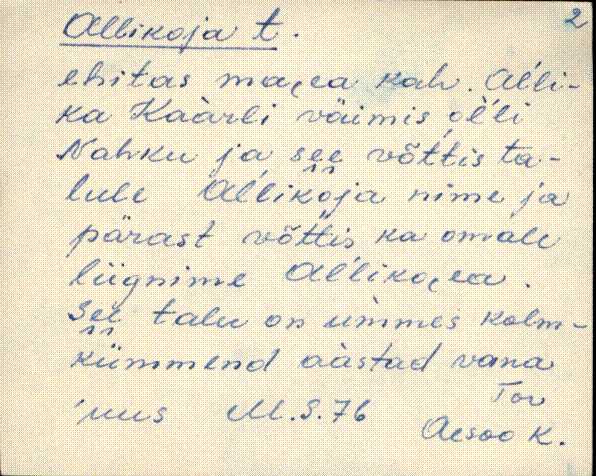 Allikoja t.
2
ehitas maea kah. Al'li-
ka Kaarli väimis ol'li
Nahku ja see võttis ta-
lule Al'likoja nime ja
pärast võttis ka omale
liignime Al'likoea.
See talu on ümmes kolm-
kümmend aastad vana
'uus M.S.76
Tov
Aesoo K.